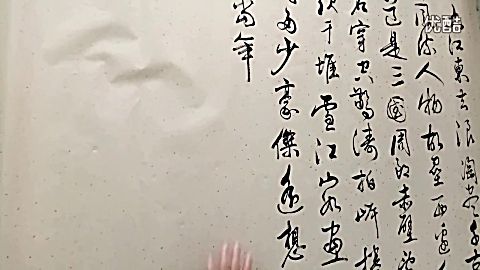 优酷
江東去浪淘尽千古
風流人物故壘西邊
道是三國周郎赤壁
石穿空驚濤拍岸捲
起千堆雪江山如畫
時多少豪傑遙想
當年